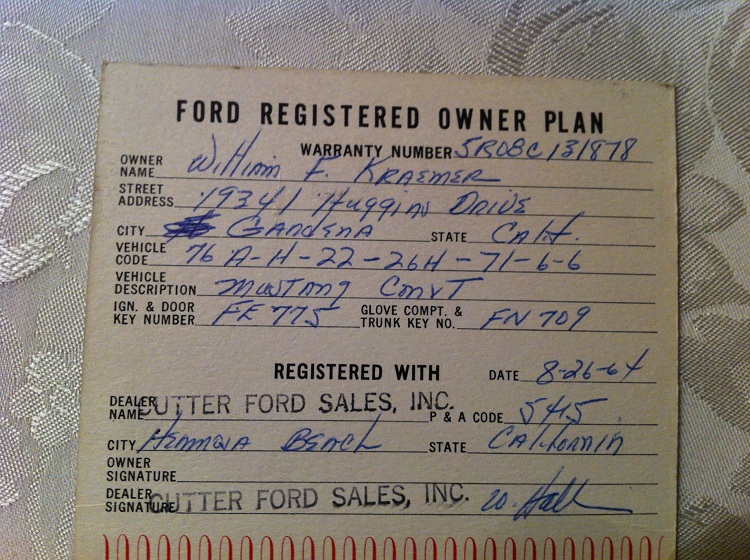 FORD REGISTERED OWNER PLAN
WARRANTY NUMBER 5R08C131878
OWNER NAME William F. KRAEMER
STREET ADDRESS 19341 Huggins DRIVE
CITY GARDENA STATE CALIF.
VEHICLE CODE 76 A-H-22-26H-71-6-6
VEHICLE DESCRIPTION MUSTANG CONVT
IGN. & DOOR KEY NUMBER FE 775 GLOVE COMPT. & TRUNK KEY NO. FN 709
REGISTERED WITH DATE 8-26-64
DEALER NAME CUTTER FORD SALES, INC. P & A CODE 5415
CITY HERMOSA BEACH STATE CALIFORNIA
OWNER SIGNATURE
DEALER SIGNATURE CUTTER FORD SALES, INC. W. Hall